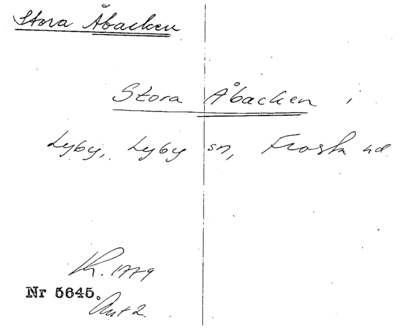 Stora Åbacken
Stora Åbacken i
Lyby, Lyby sn, Frosta hd
Kr. 1779
Nr 5645.
Ant 2.